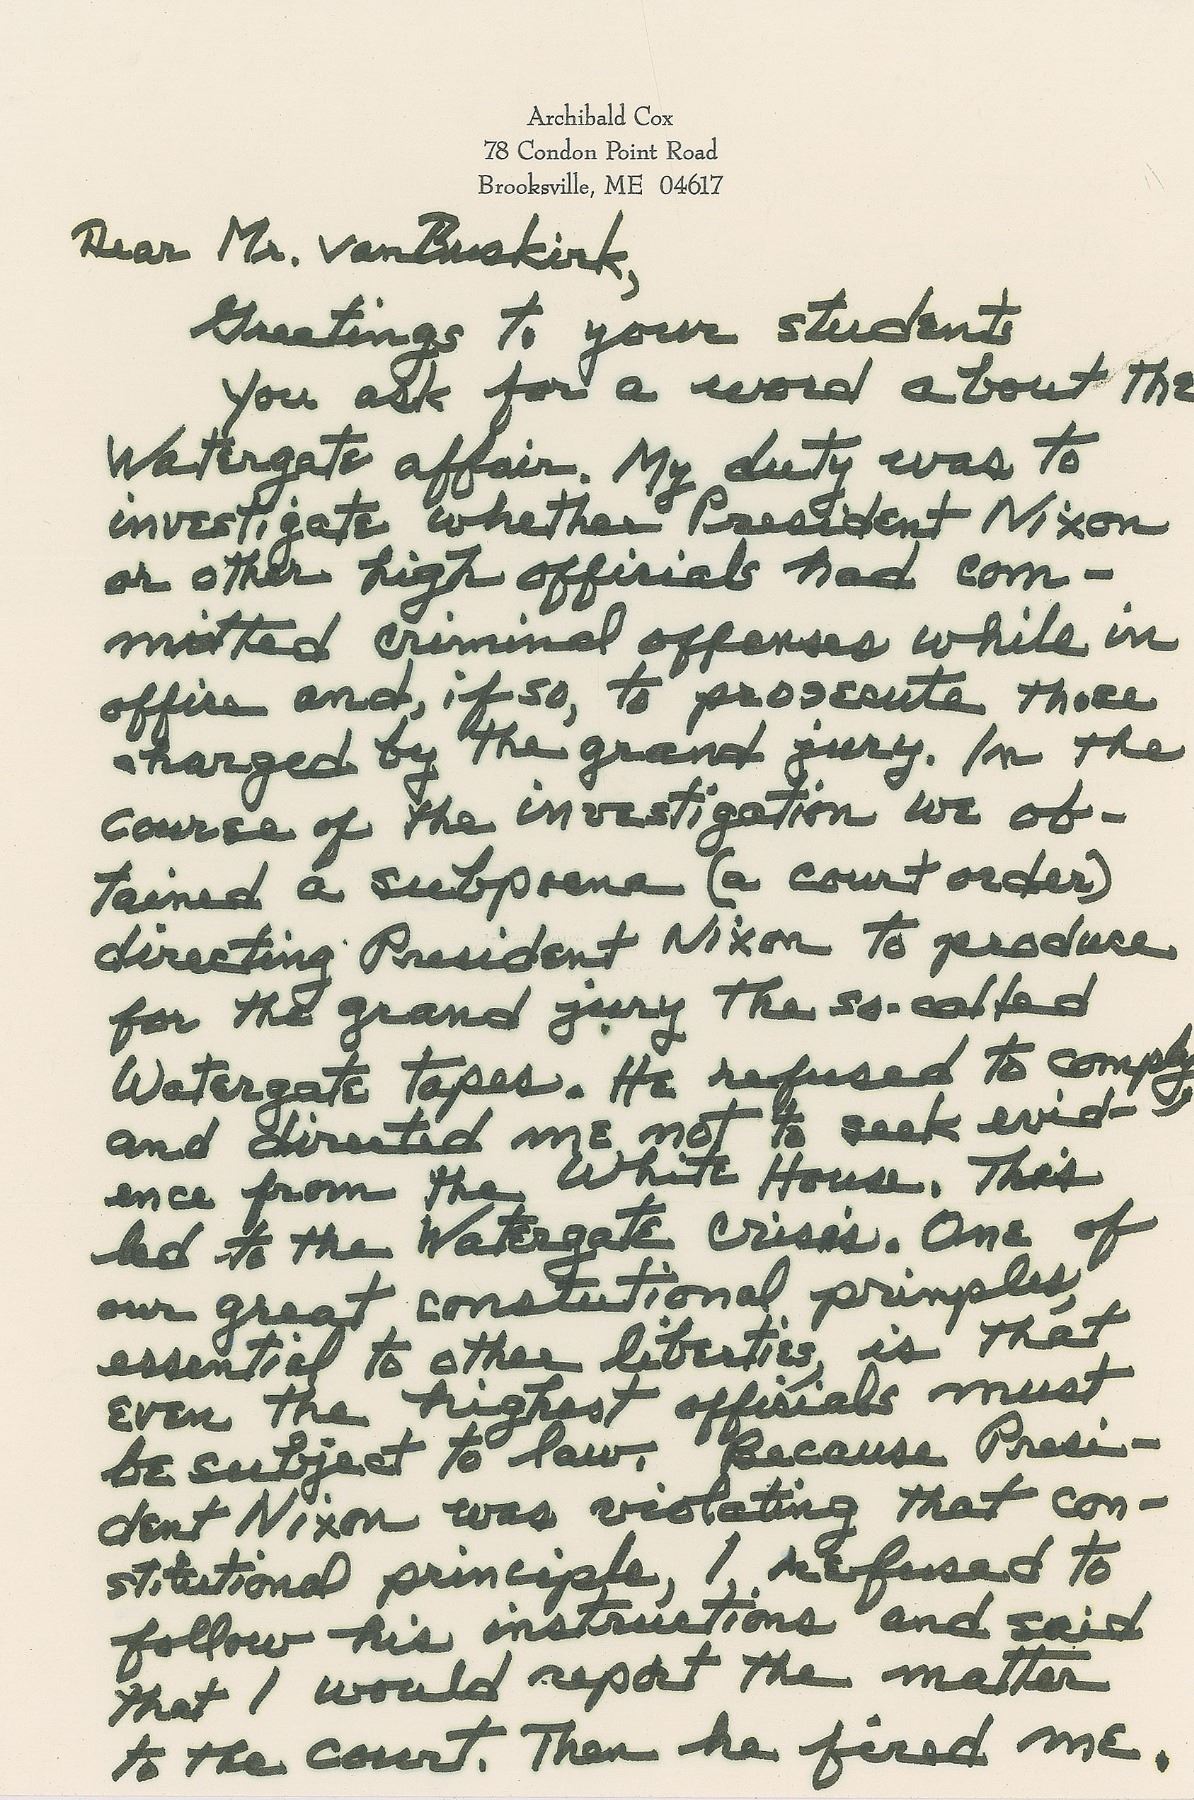 Archibald Cox
78 Condon Point Road
Brooksville, ME 04617
Dear Mr. vanBuskirk,
Greetings to your students
You ask for a word about the
Watergate affair. My duty was to
investigate whether President Nixon
or other high officials had com-
mitted criminal offenses while in
office and, if so, to prosecute those
charged by the grand jury. In the
course of the investigation we ob-
tained a subpoena (a court order)
directing President Nixon to produce
for the grand jury the so-called
Watergate tapes. He refused to comply,
and directed me not to seek evid-
ence from the White House. This
led to the Watergate Crisis. One of
our great constutional prinples,
essential to other liberties, is that
even the highest officials must
be subject to law. Because Presi-
dent Nixon was violating that con-
stitutional principle, I refused to
follow his instructions and said
that I would report the matter
to the court. Then he fired me.